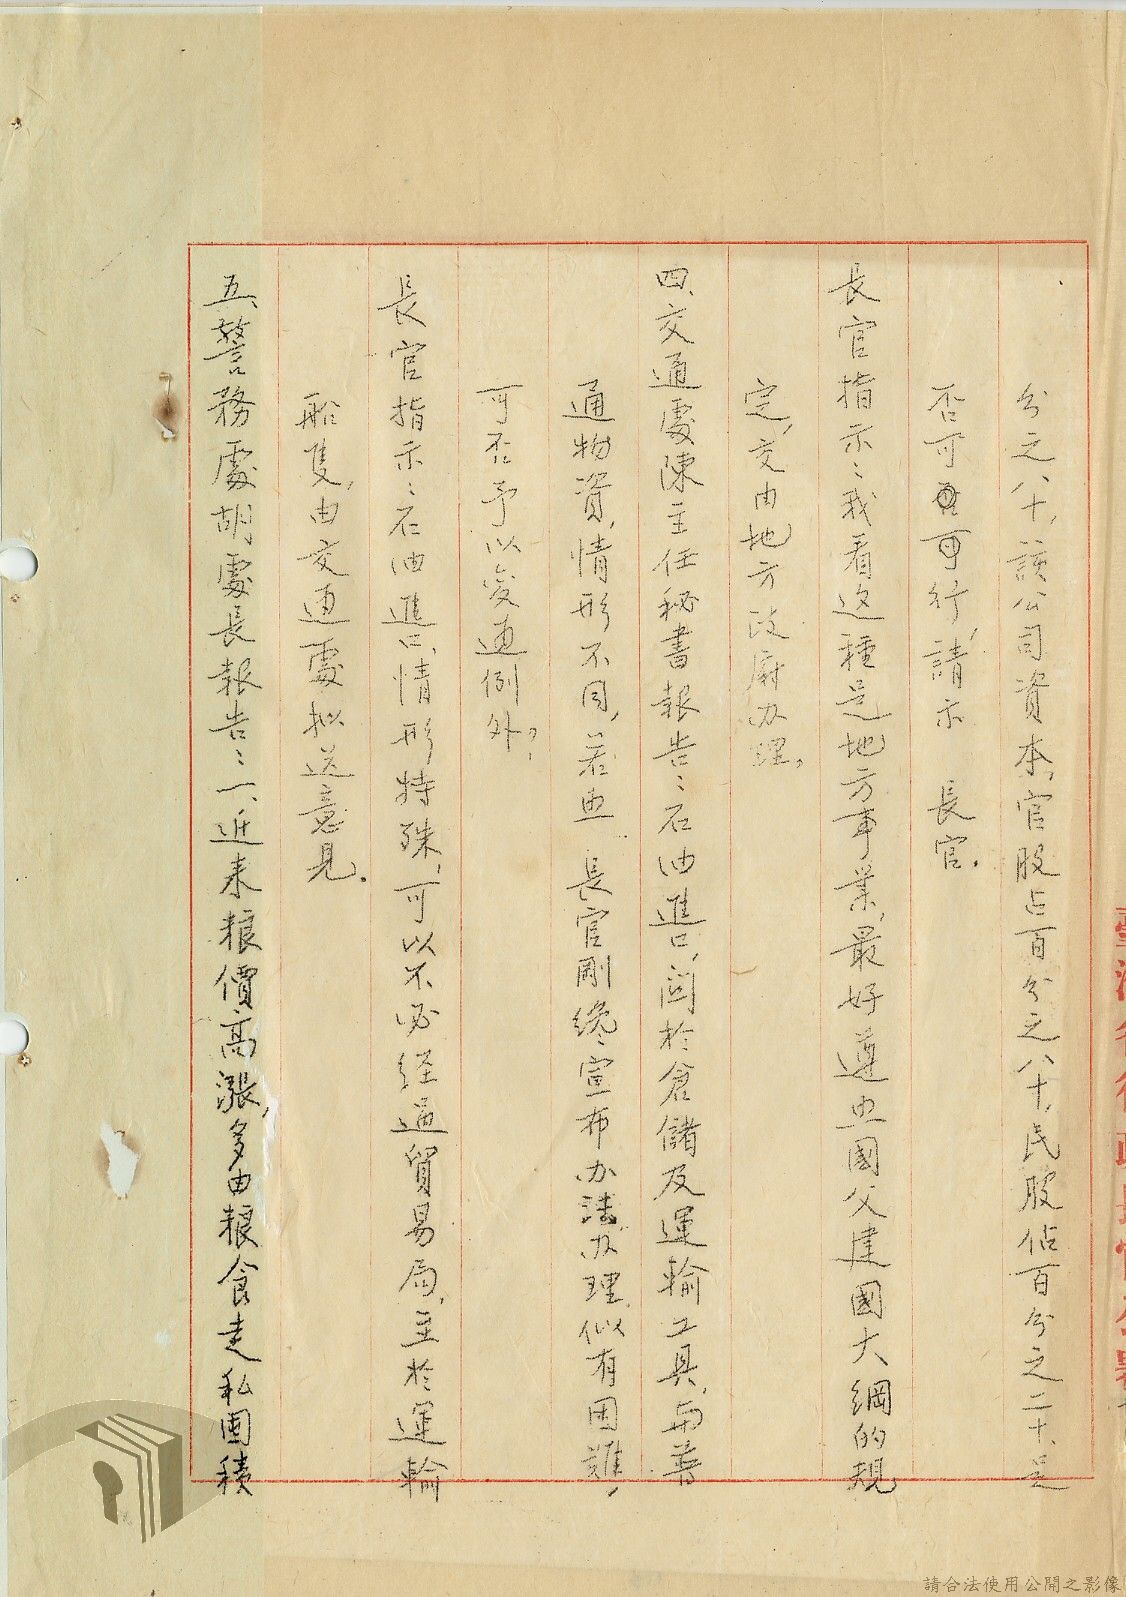 分之八十，該公司資本，官股占百分之八十，民股佔百分之二十，是
否可行，請示　長官。
長官指示：我看这種是地方事業，最好遵照國父建國大綱的規
定，交由地方政府办理。
四、交通處陳主任秘書報告：石油進口，関於倉儲及運輸工具，与普
通物資，情形不同，若照　長官剛纔宣布办法办理，似有困難，
可否予以变通例外？
長官指示：石油進口，情形特殊，可以不必経過貿易局，至於運輸
船隻，由交通處拟送意見。
五、警務處胡處長報告：一、近來粮價高漲，多由粮食走私囤積
請合法使用公開之影像